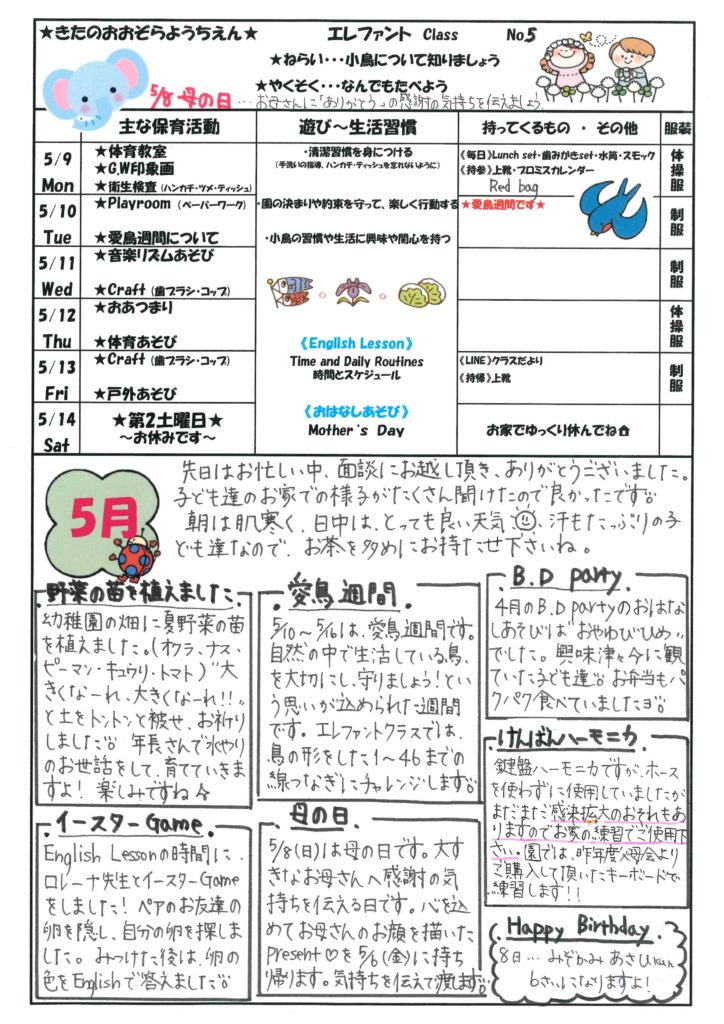 ★きたのおおぞらようちえん★ エレファント Class No.5
★ねらい…小鳥について知りましょう
★やくそく…なんでもたべよう
5/8 母の日…お母さんに「ありがとう」の感謝の気持ちを伝えましょう。
主な保育活動 遊び～生活習慣 持ってくるもの ・ その他 服装
5/9 Mon
★体育教室
★G.W印象画
★衛生検査(ハンカチ・ツメ・ティッシュ)
・清潔習慣を身につける
(手洗いの指導、ハンカチ・ティッシュを忘れないように)
《毎日》Lunch set・歯みがきset・水筒・スモック
《持参》上靴・プロミスカレンダー
Red bag
体操服
5/10 Tue
★Playroom (ペーパーワーク)
★愛鳥週間について
・園の決まりや約束を守って、楽しく行動する
・小鳥の習慣や生活に興味や関心を持つ
★愛鳥週間です★
制服
5/11 Wed
★音楽リズムあそび
★Craft (歯ブラシ・コップ)
制服
5/12 Thu
★おあつまり
★体育あそび
《English Lesson》
Time and Daily Routines
時間とスケジュール
体操服
5/13 Fri
★Craft (歯ブラシ・コップ)
★戸外あそび
《LINE》クラスだより
《持帰》上靴
制服
5/14 Sat
★第2土曜日★
～お休みです～
《おはなしあそび》
Mother's Day
お家でゆっくり休んでね
5月
先日はお忙しい中、面談にお越し頂き、ありがとうございました。
子ども達のお家での様子がたくさん聞けたので良かったです。
朝は肌寒く、日中は、とっても良い天気、汗もたっぷりの子
ども達なので、お茶を多めにお持たせ下さいね。
野菜の苗を植えました
幼稚園の畑に夏野菜の苗
を植えました。(オクラ、ナス、
ピーマン・キュウリ・トマト)"大
きくなーれ、大きくなーれ!!"
と土をトントンと被せ、お祈り
しました。年長さんで水やり
のお世話をして、育てていきま
すよ! 楽しみですね☆
愛鳥週間
5/10～5/16は、愛鳥週間です。
自然の中で生活している鳥
を大切にし、守りましょう!とい
う思いが込められた週間
です。エレファントクラスでは、
鳥の形をした1～46までの
線つなぎにチャレンジします。
B.D party
4月のB.D partyのおはな
しあそびは"おやゆびひめ"
でした。興味津々に観
ていた子ども達。お弁当もパ
クパク食べていましたヨ。
けんばんハーモニカ
鍵盤ハーモニカですが、ホース
を使わずに使用していましたが
まだまだ感染拡大のおそれもあ
りますのでお家の練習でご使用下
さい。園では、昨年度父母会より
ご購入して頂いたキーボードで
練習します!!
イースターGame
English Lessonの時間に、
ロレーナ先生とイースターGame
をしました! ペアのお友達の
卵を隠し、自分の卵を探しま
した。みつけた後は、卵の
色をEnglishで答えました。
母の日
5/8(日)は母の日です。大す
きなお母さんへ感謝の気
持ちを伝える日です。心を込
めてお母さんのお顔を描いた
Present♡を5/6(金)に持ち
帰ります。気持ちを伝えて渡します。
Happy Birthday
8日…みぞかみ あさひkun
6さいになりますよ!